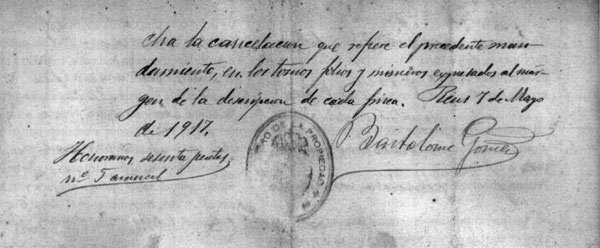 cha la cancelacion que refiere el precedente man-
damiento, en los tomos folios y números expresados al már-
gen de la descripcion de cada finca. Reus 7 de Mayo
de 1917.
Bartolome Gómez
Honorarios sesenta pesetas
nº 5 arancel
RO DE LA PROPIEDAD